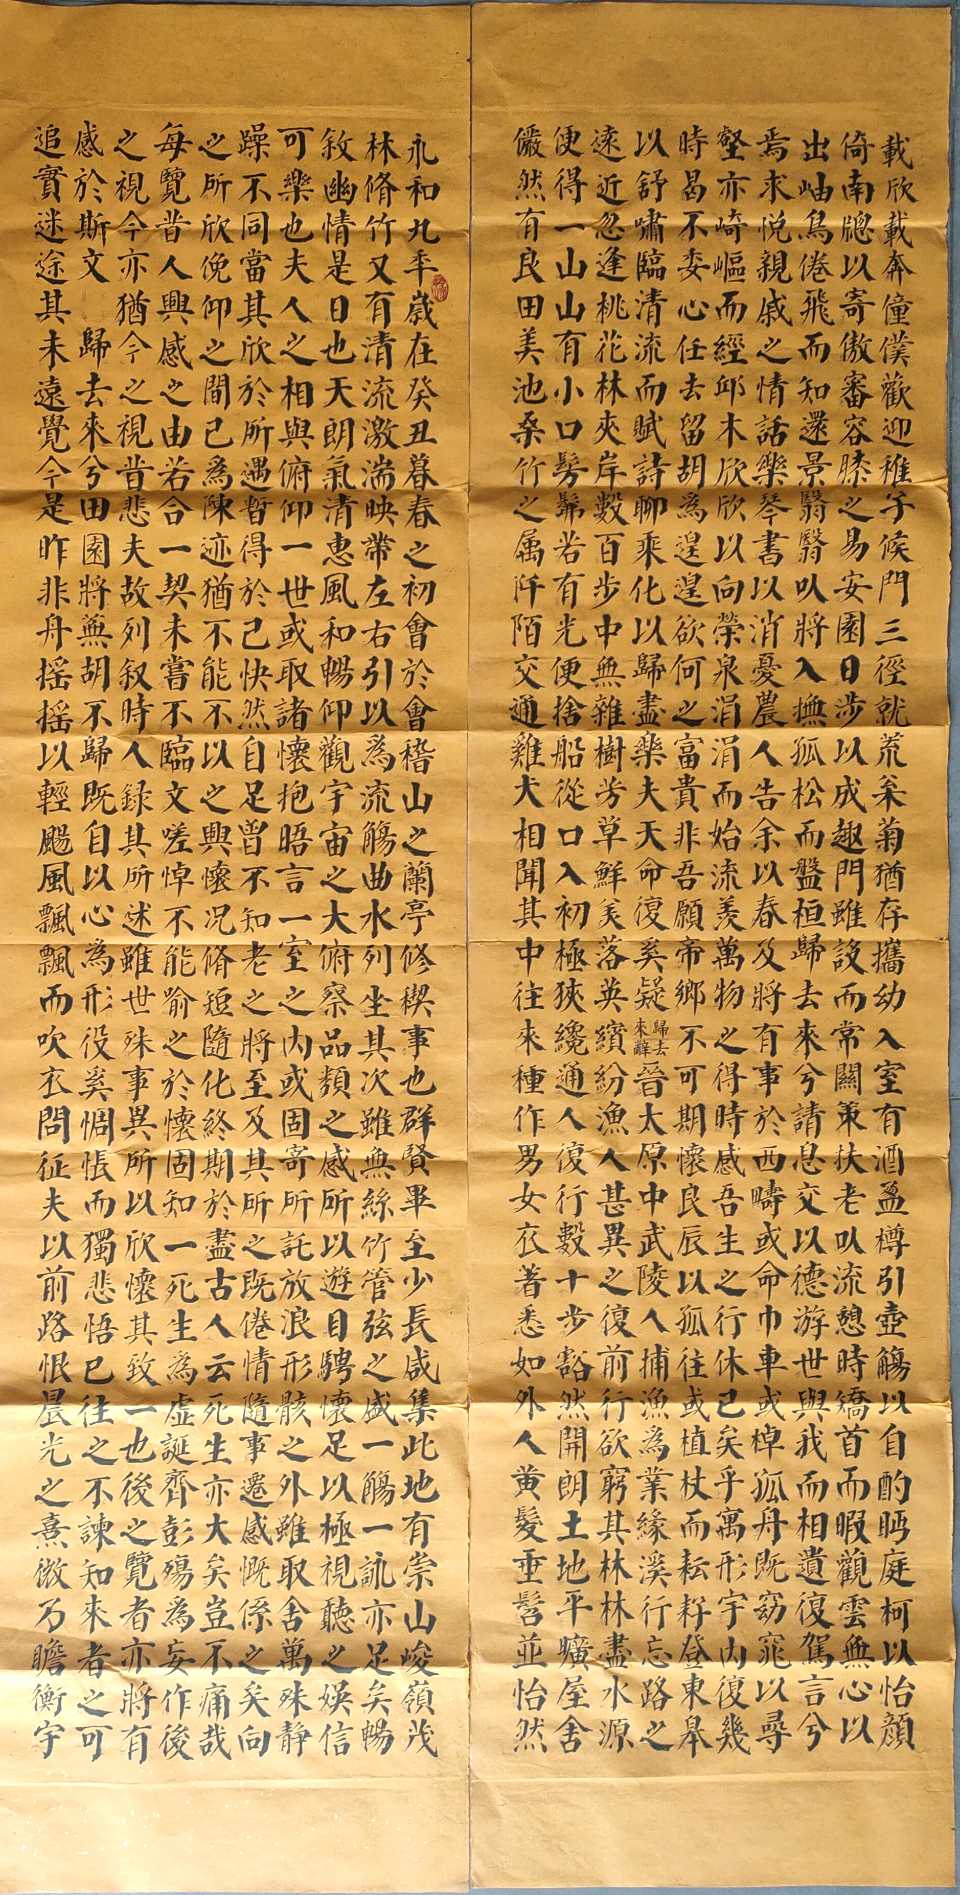 永和九年歲在癸丑暮春之初會於會稽山之蘭亭修禊事也群賢畢至少長咸集此地有崇山峻嶺茂
林脩竹又有清流激湍映帶左右引以為流觴曲水列坐其次雖無絲竹管弦之盛一觴一詠亦足矣暢
敘幽情是日也天朗氣清惠風和暢仰觀宇宙之大俯察品類之感所以遊目騁懷足以極視聽之娛信
可樂也夫人之相與俯仰一世或取諸懷抱晤言一室之內或固寄所託放浪形骸之外雖取舍萬殊静
躁不同當其欣於所遇暫得於己快然自足曾不知老之將至及其所之既倦情隨事遷感慨係之矣向
之所欣俛仰之間已為陳迹猶不能不以之興懷况脩短隨化終期於盡古人云死生亦大矣豈不痛哉
每覽昔人興感之由若合一契未嘗不臨文嗟悼不能喻之於懷固知一死生為虛誕齊彭殤為妄作後
之視今亦猶今之視昔悲夫故列叙時人録其所述雖世殊事異所以欣懷其致一也後之覽者亦將有
感於斯文 歸去來兮田園將蕪胡不歸既自以心為形役奚惆悵而獨悲悟已往之不諫知來者之可
追實迷途其未遠覺今是昨非舟摇摇以輕颺風飄飄而吹衣問征夫以前路恨晨光之熹微乃瞻衡宇
載欣載奔僮僕歡迎稚子候門三徑就荒菊猶存攜幼入室有酒盈樽引壺觴以自酌眄庭柯以怡顏
倚南牕以寄傲審容膝之易安園日涉以成趣門雖設而常關策扶老以流憩時矯首而暇觀雲無心以
出岫鳥倦飛而知還景翳翳以將入撫孤松而盤桓歸去來兮請息交以德游世與我而相遺復駕言兮
焉求悅親戚之情話樂琴書以消憂農人告余以春及將有事於西疇或命巾車或棹孤舟既窈窕以尋
壑亦崎嶇而經邱木欣欣以向榮泉涓涓而始流羨萬物之得時感吾生之行休已矣乎寓形宇內復幾
時曷不委心任去留胡為遑遑欲何之富貴非吾願帝鄉不可期懷良辰以孤往或植杖而耘耔登東皋
以舒嘯臨清流而賦詩聊乘化以歸盡樂夫天命復奚疑歸去來辭晉太原中武陵人捕漁為業緣溪行忘路之
遠近忽逢桃花林夾岸數百步中無雜樹芳草鮮美落英繽紛漁人甚異之復前行欲窮其林林盡水源
便得一山山有小口髣髴若有光便捨船從口入初極狹纔通人復行數十步豁然開朗土地平曠屋舍
儼然有良田美池桑竹之屬阡陌交通雞犬相聞其中往來種作男女衣著悉如外人黃髮垂髫並怡然